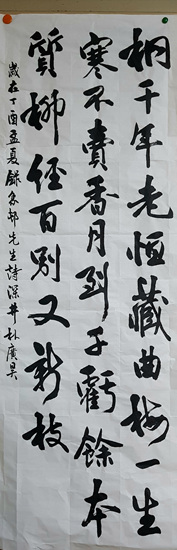 桐千年老恒藏曲梅一生
寒不賣香月到千虧餘本
質柳經百別又新枝
歲在丁酉孟夏録象邨先生詩深井林廣興